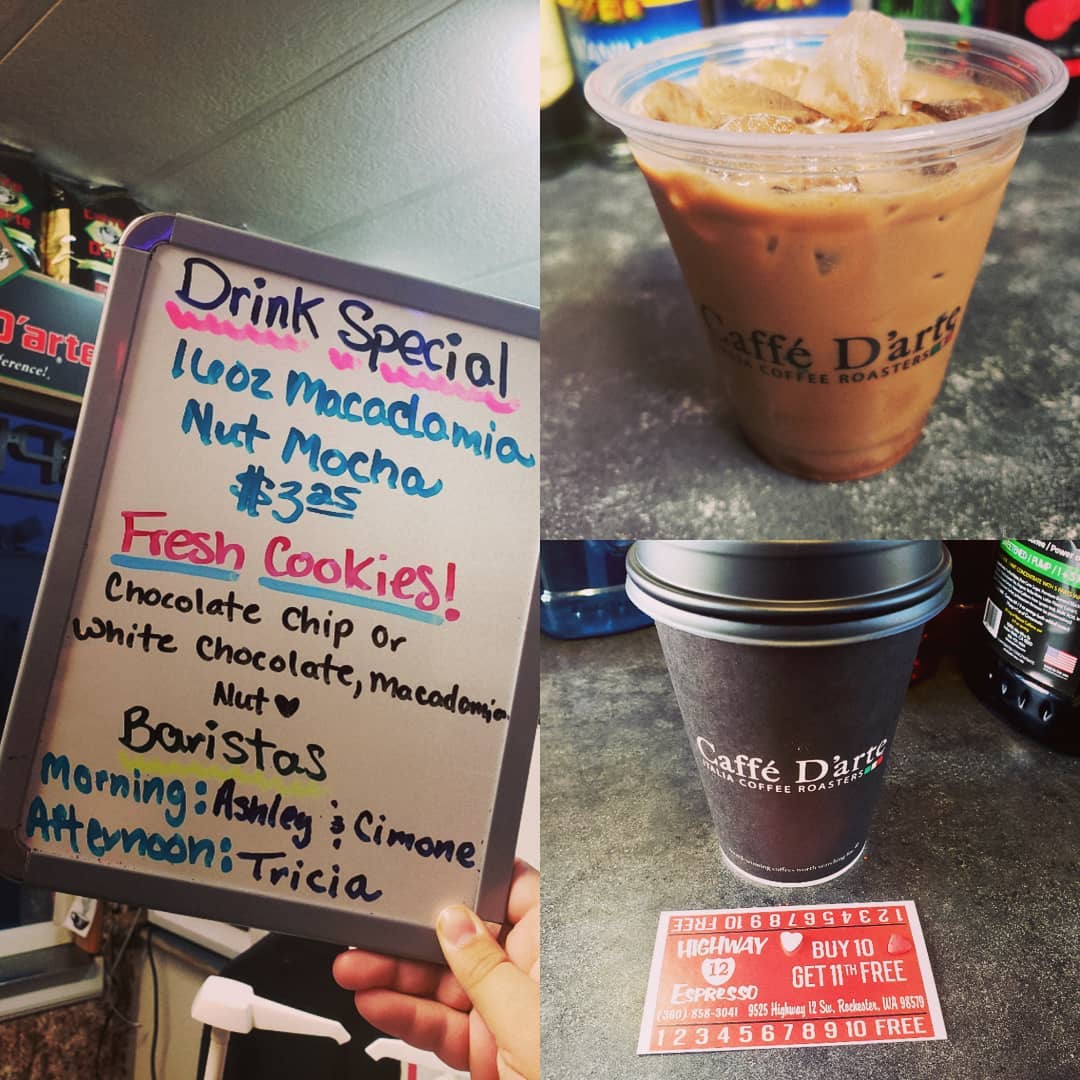 D'arte
ference!
Drink Special
16oz Macadamia
Nut Mocha
$3.25
Fresh Cookies!
Chocolate Chip or
White Chocolate, Macadamia
Nut ♥
Baristas
Morning: Ashley & Cimone
Afternoon: Tricia
Caffé D'arte
ITALIA COFFEE ROASTERS
Caffé D'arte
ITALIA COFFEE ROASTERS
1 2 3 4 5 6 7 8 9 10 FREE
HIGHWAY
12
ESPRESSO
BUY 10
GET 11TH FREE
(360)-858-3041 9525 Highway 12 Sw, Rochester, WA 98579
1 2 3 4 5 6 7 8 9 10 FREE